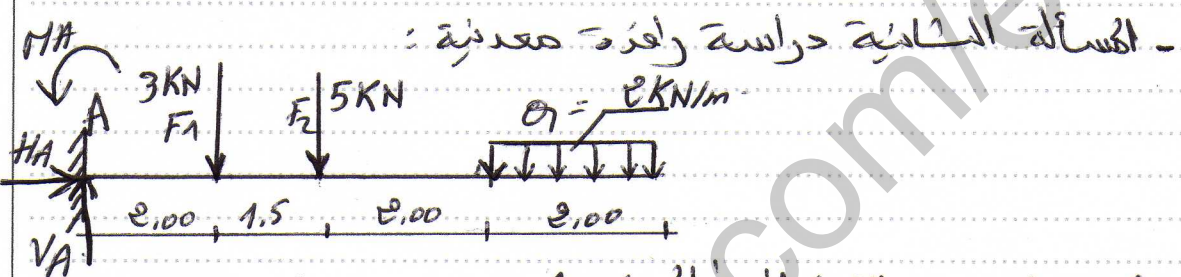 - المسألة الثانية دراسة رافدة معدنية :
MA
A
3KN
F1
F2
5KN
q = 2KN/m
HA
2,00
1.5
2,00
2,00
VA
.com/e